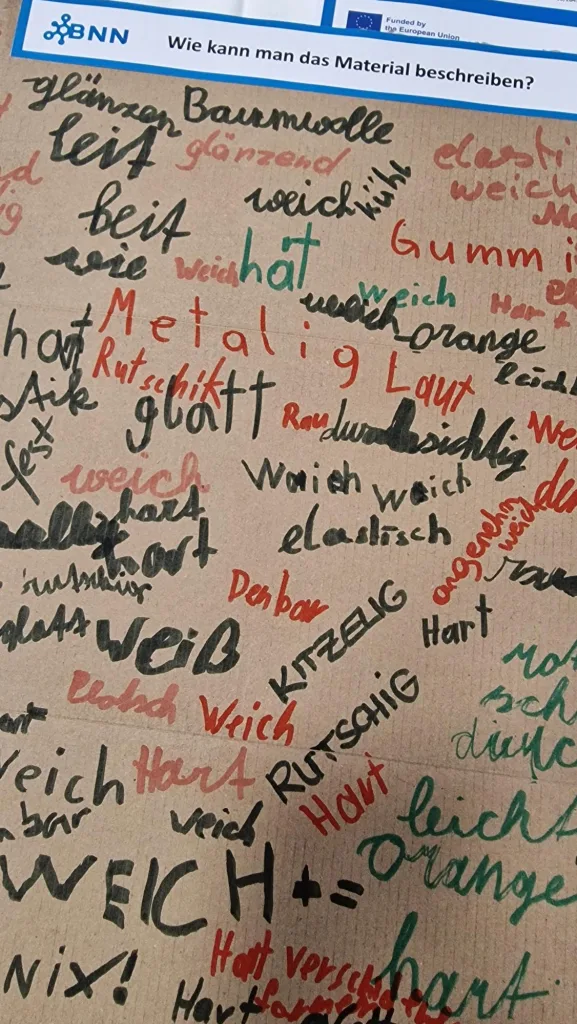 BNN
Funded by
the European Union
Wie kann man das Material beschreiben?
glänzen Baumwolle
leit glänzend elasti
weich kühl weich
beit
Gummi
wie weich hat weich
Hart
weich orange
hart Metalig Laut leicht
Rutschik
stik glatt Rau durchsichtig We
fest
weich Waich weich
hart elastisch angenehm
weich
hart
rutschig Denbar
KITZELIG Hart
glatt weiß
rot
Weich RUTSCHIG sch
durc
weich Hart
Hart
bar veich leicht
orange
WEICH +=
Hart hart
Nix!
Hart